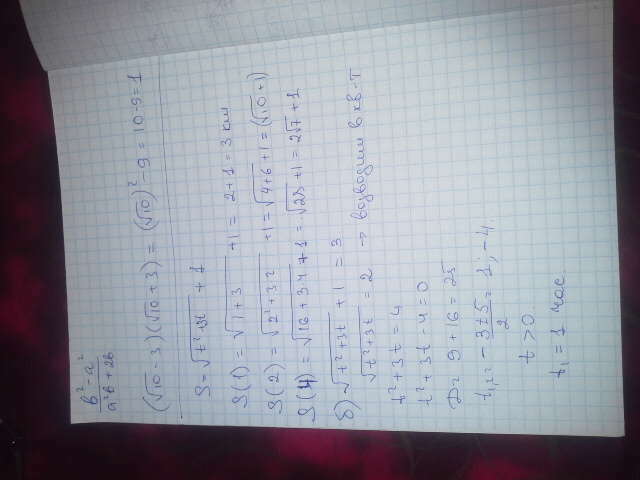 b² - a²
a²b + 2b
(√10 - 3)(√10 + 3) = (√10)² - 9 = 10 - 9 = 1
S = √t² + 3t + 1
S(1) = √1 + 3 + 1 = 2 + 1 = 3 км
S(2) = √2² + 3·2 + 1 = √4 + 6 + 1 = (√10 + 1)
S(4) = √16 + 3·4 + 1 = √28 + 1 = 2√7 + 1
б) √t² + 3t + 1 = 3
√t² + 3t = 2 → возводим в кв-т
t² + 3t = 4
t² + 3t - 4 = 0
D = 9 + 16 = 25
t₁,₂ = -3 ± 5 / 2 = 1; -4.
t > 0
t₁ = 1 час